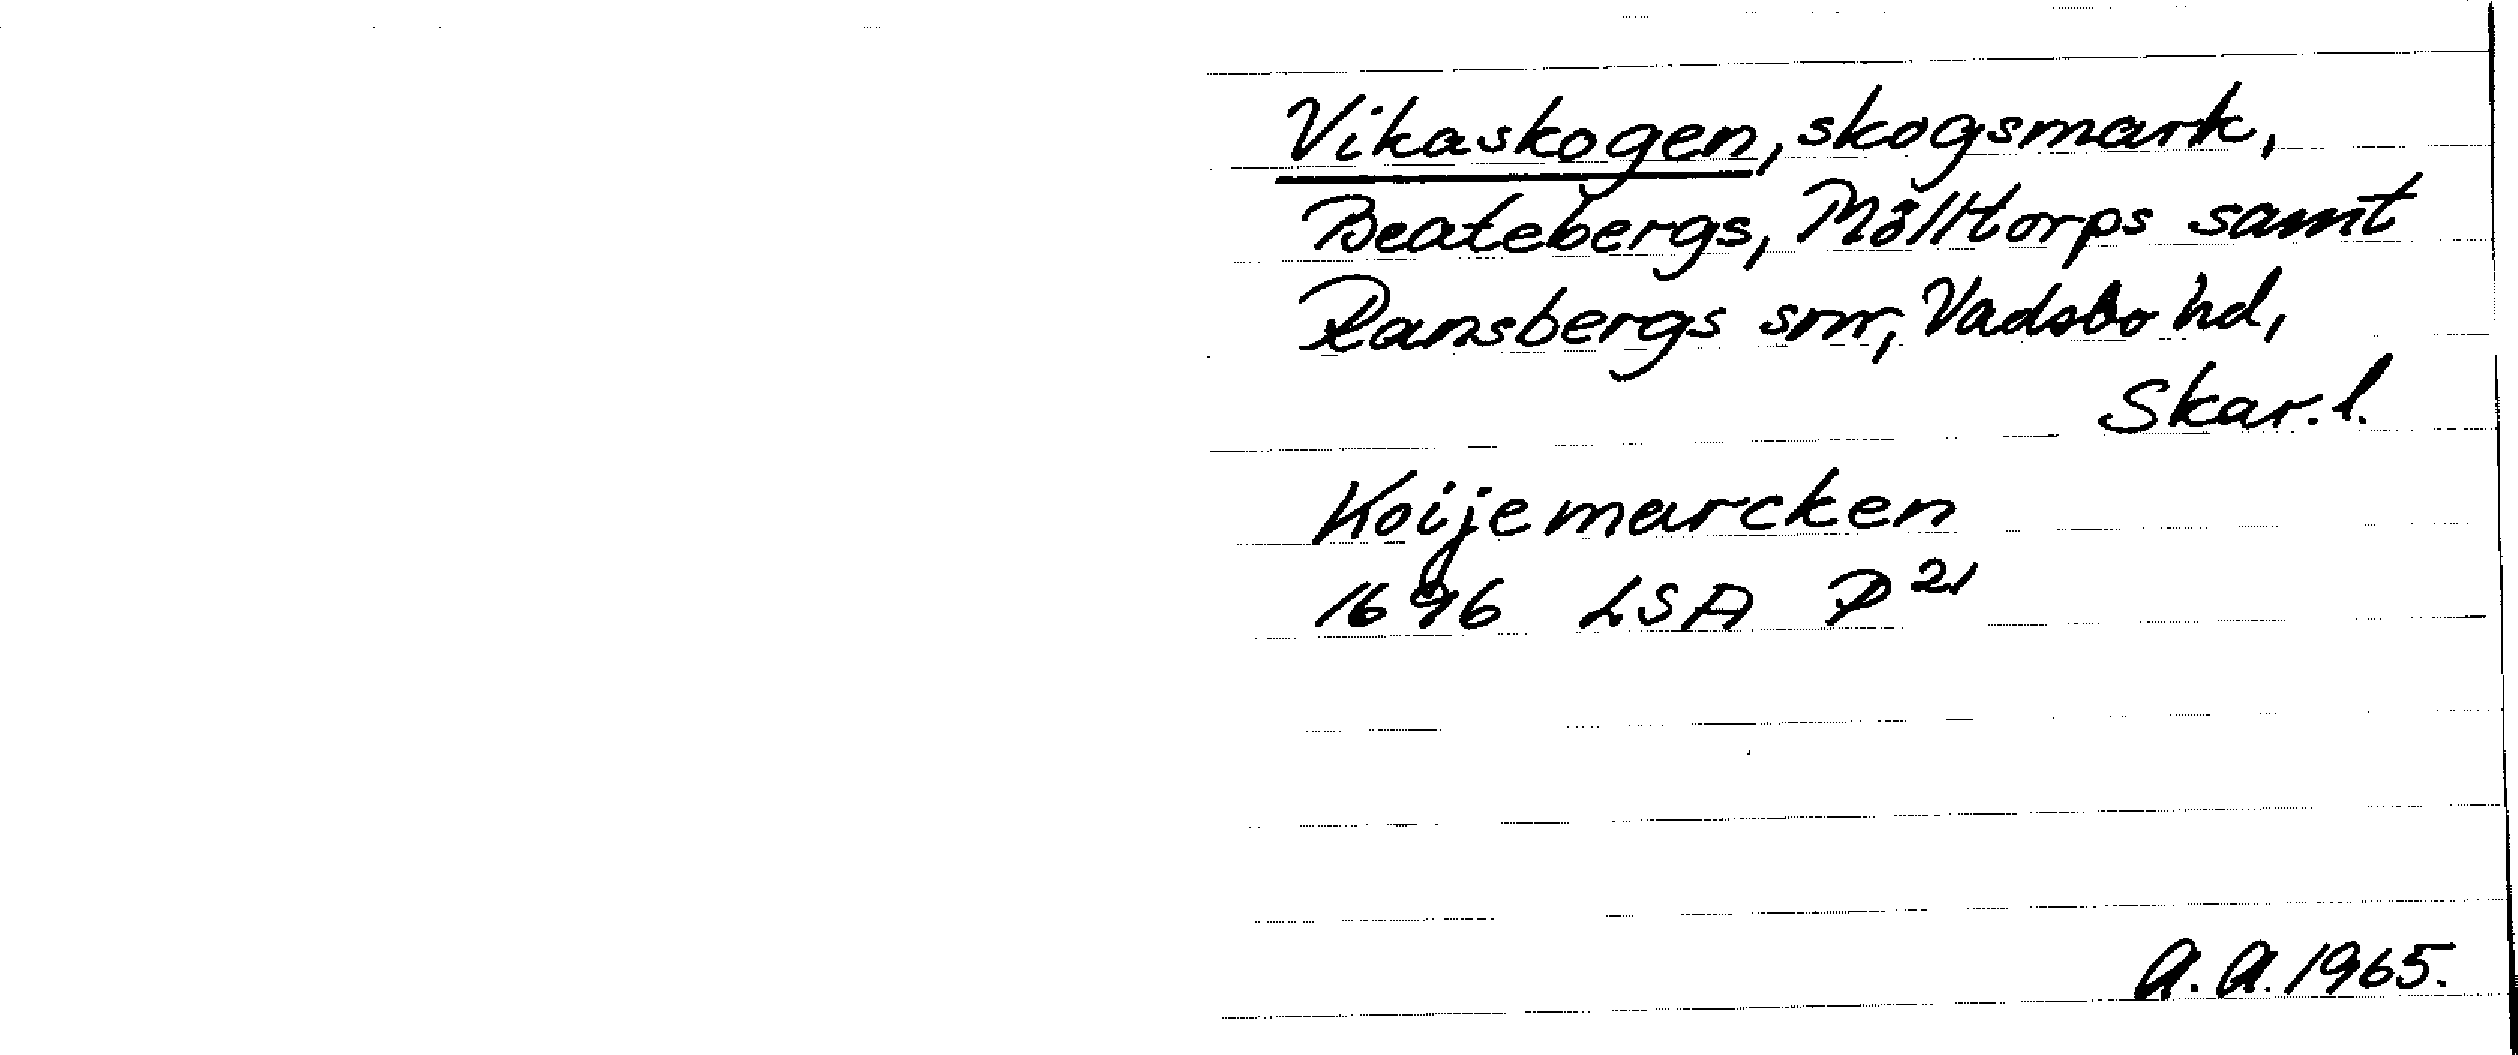 Vikaskogen, skogsmark,
Beatebergs, Mölltorps samt
Ransbergs snr, Vadsbo hd,
Skar. l.
Koijemarcken
1696 LSA P21
A. A. 1965.